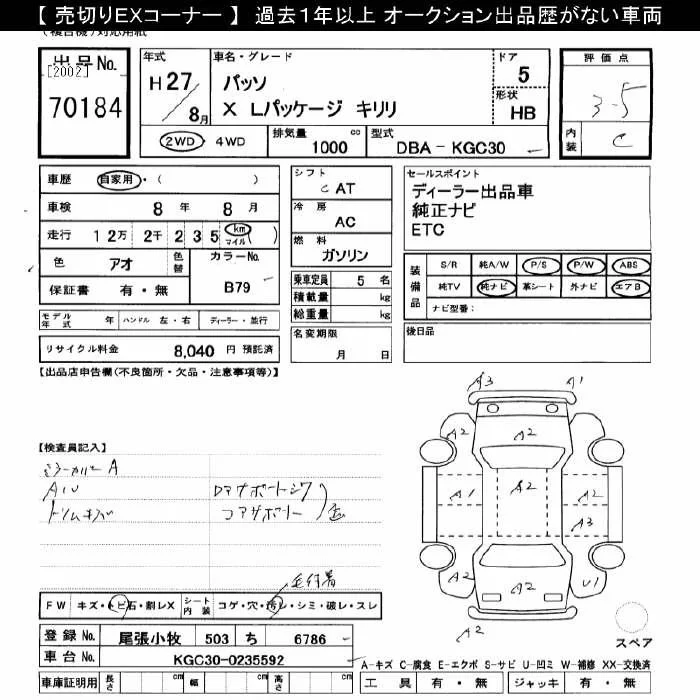 【 売切りEXコーナー 】 過去1年以上 オークション出品歴がない車両
出品No.
[2002]
70184
年式
H27/8月
車名・グレード
パッソ
X Lパッケージ キリリ
ドア
5
形状
HB
2WD・4WD
排気量 1000 cc
型式 DBA - KGC30
評価点
3-5
内装
C
車歴 自家用・( )
車検 8年 8月
走行 12万 2千 235 km マイル
色 アオ 色替 カラーNo. B79
保証書 有・無
モデル年式 年 ハンドル 左・右 ディーラー・並行
リサイクル料金 8,040 円 預託済
シフト
C AT
冷房
AC
燃料
ガソリン
乗車定員 5 名
積載量 kg
総重量 kg
名変期限
月 日
セールスポイント
ディーラー出品車
純正ナビ
ETC
装備品
S/R 純A/W P/S P/W ABS
純TV 純ナビ 革シート 外ナビ エアB
ナビ型番：
後日品
【出品店申告欄(不良箇所・欠品・注意事項等)】
【検査員記入】
A3 A1
A2 A2 A2
A1 A2 A2
A3
A2 A2 U1
A2
スペア
FW キズ・トビ石・割レX シート内装 コゲ・穴・汚レ・シミ・破レ・スレ
登録No. 尾張小牧 503 ち 6786
車台No. KGC30-0235592
A-キズ C-腐食 E-エクボ S-サビ U-凹ミ W-補修 XX-交換済
車庫証明用 長さ cm 幅 cm 高さ cm
工具 有・無 ジャッキ 有・無